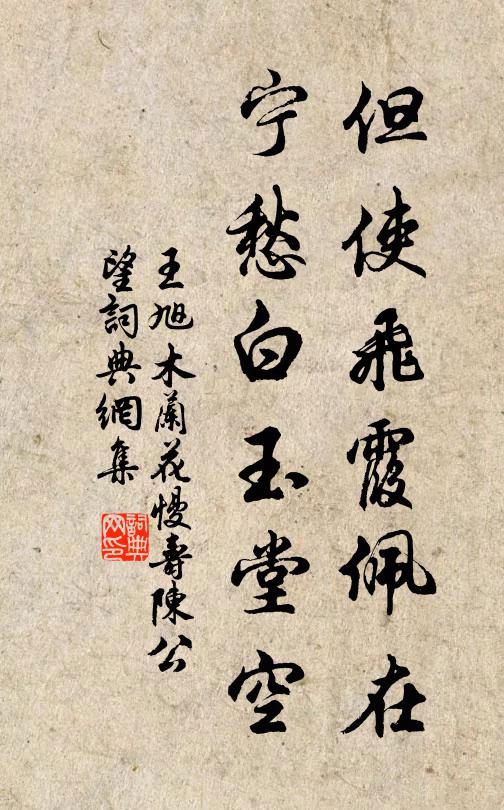 但使飛霞佩在
宁愁白玉堂空
王旭木蘭花慢壽陳公
望詞典網集
詞典
网印